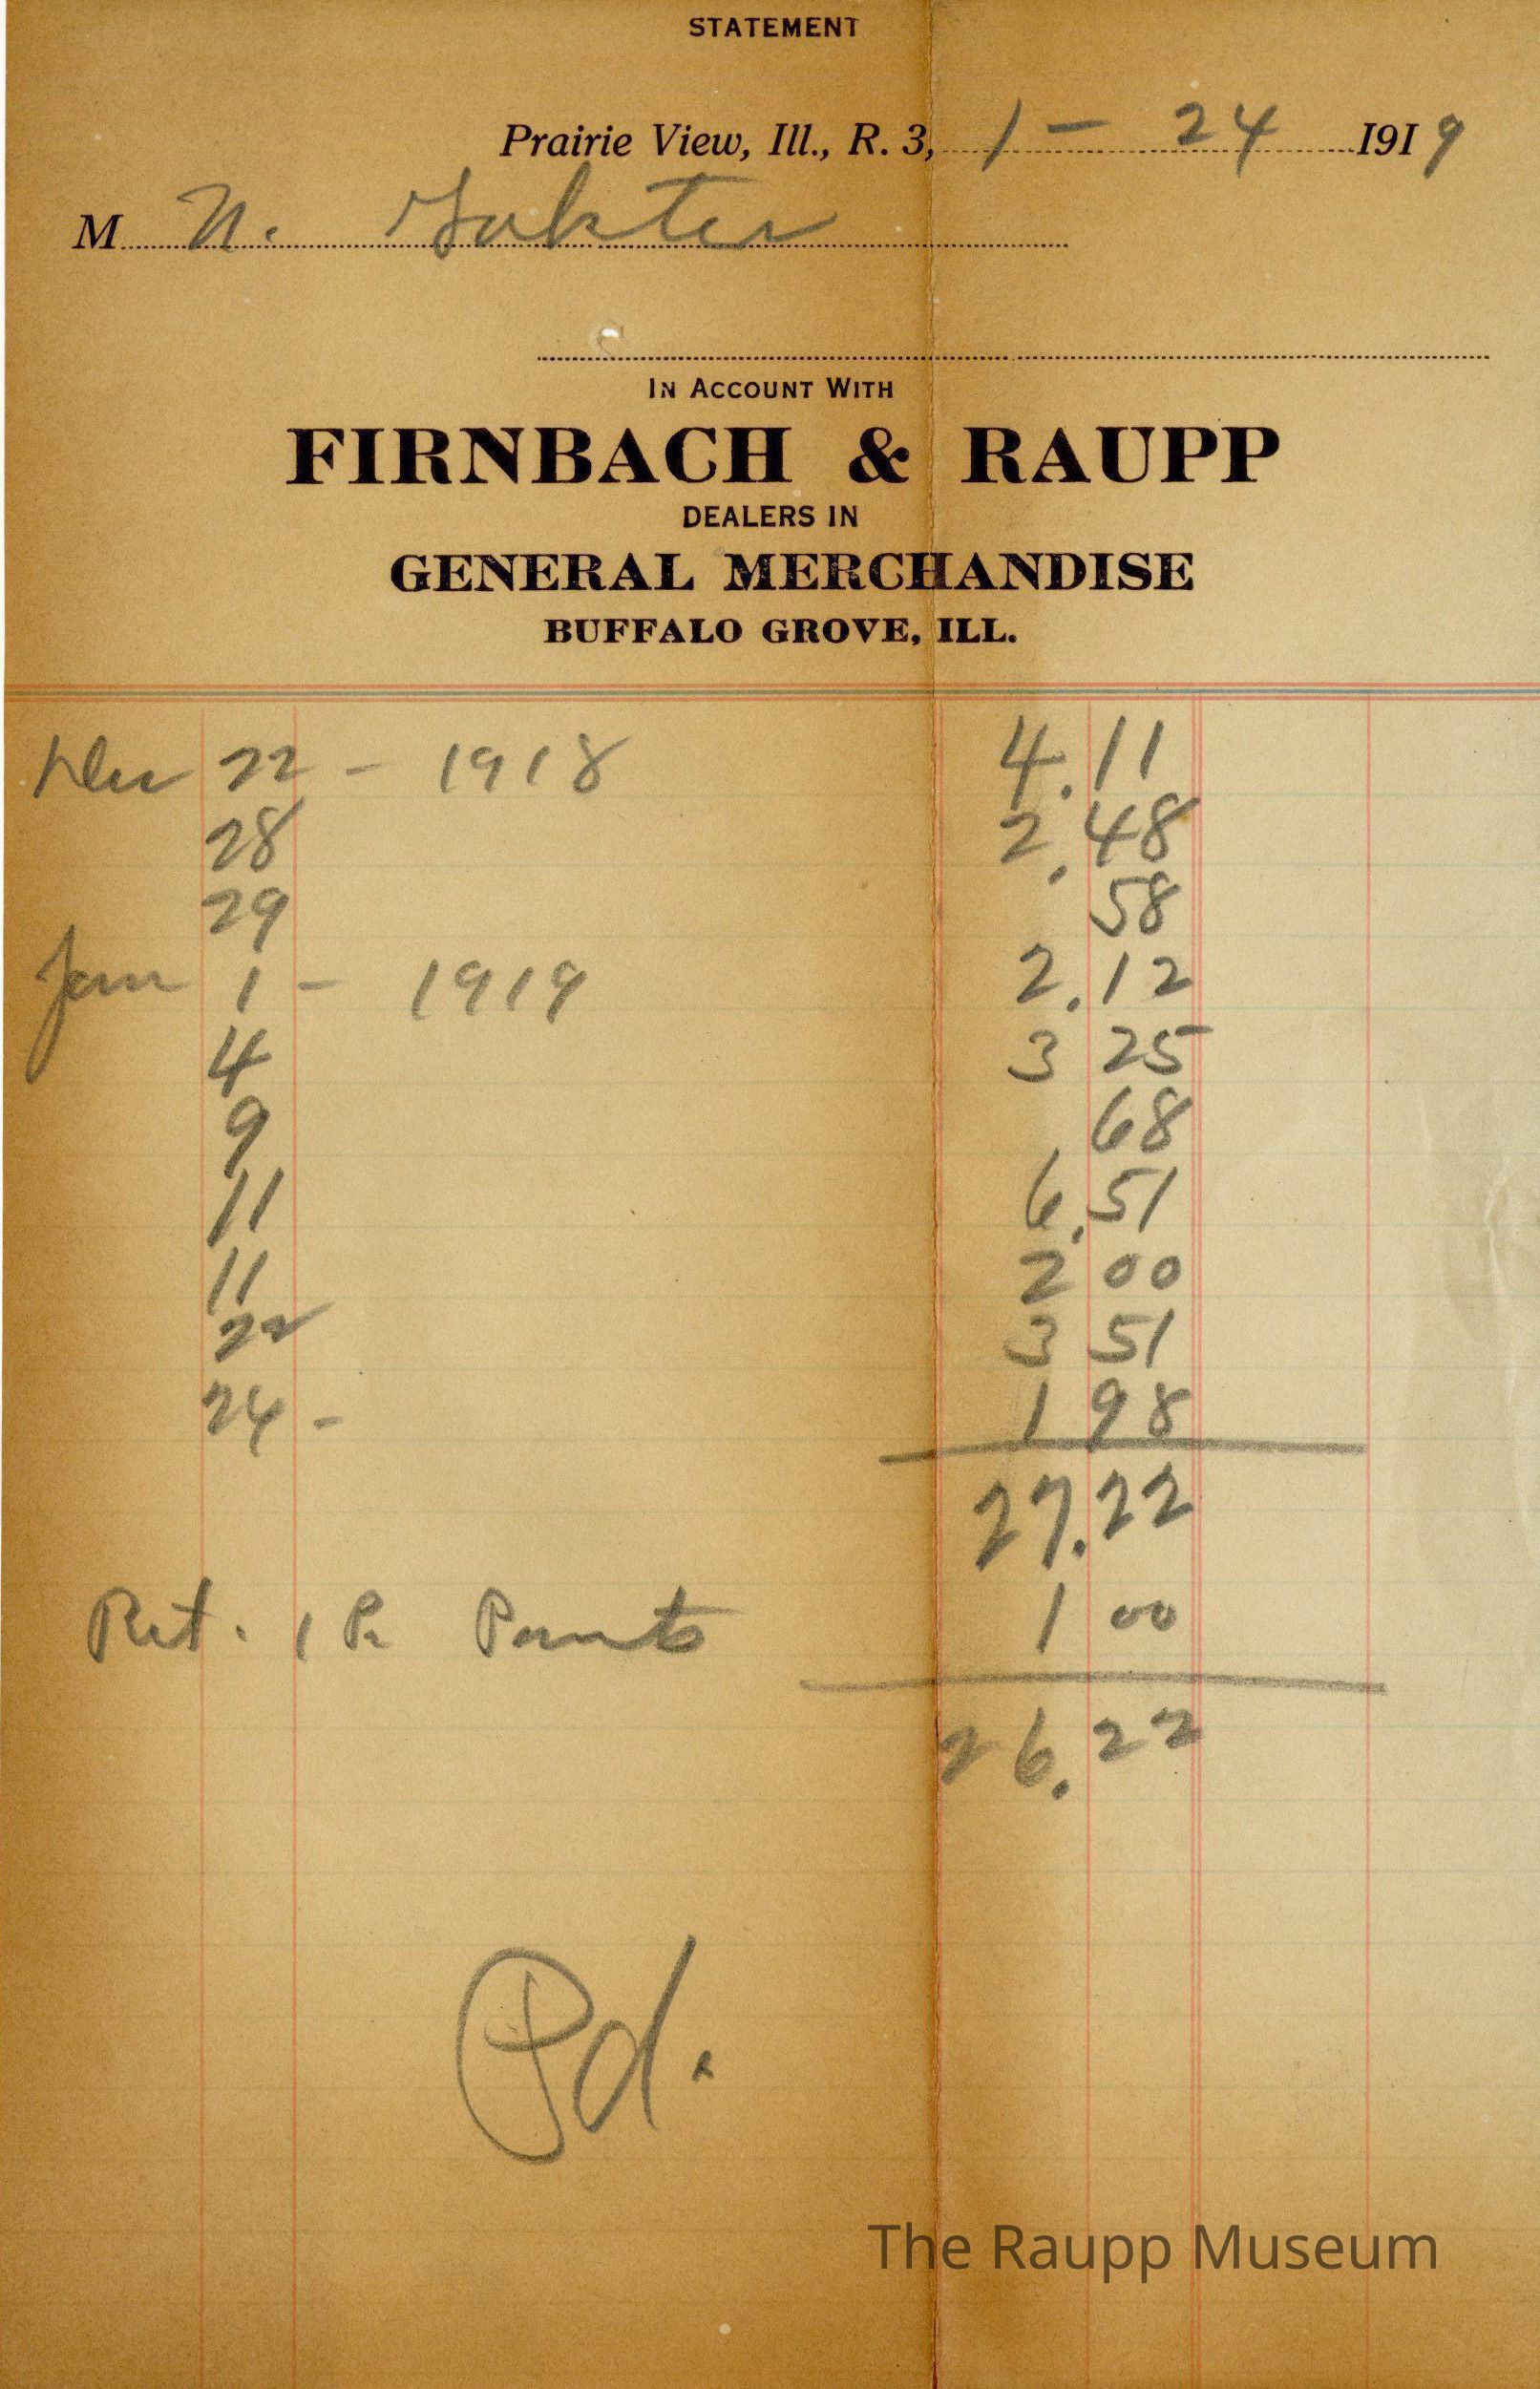 STATEMENT
Prairie View, Ill., R. 3, 1 - 24 1919
M N.
IN ACCOUNT WITH
FIRNBACH & RAUPP
DEALERS IN
GENERAL MERCHANDISE
BUFFALO GROVE, ILL.
Dec 22 - 1918 4.11
28 2.48
29 58
Jan 1 - 1919 2.12
4 3 25
9 68
11 6.51
11 2 00
22 3 51
24 - 1 98
27.22
Ret. 1 Pr Pants 1 00
26.22
Pd.
The Raupp Museum